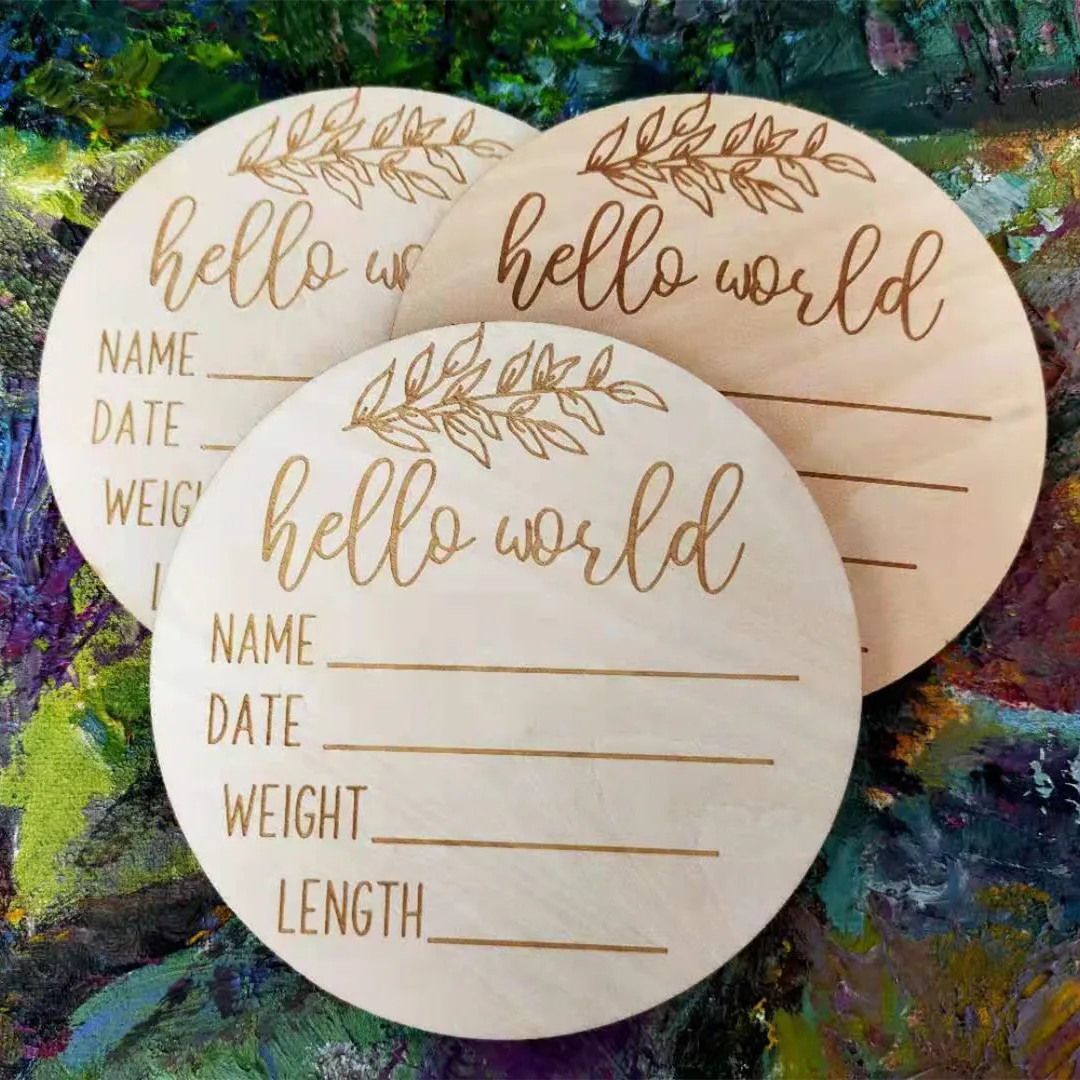 hello
NAME
DATE
hello world
hello world
NAME
DATE
WEIGHT
LENGTH